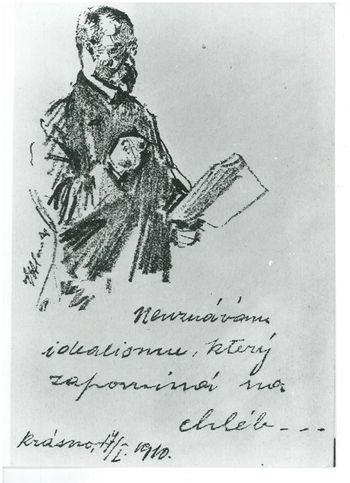 Neuznávám
idealismu, který
zapomíná na
chléb---
Krásno, 17/I. 1910.